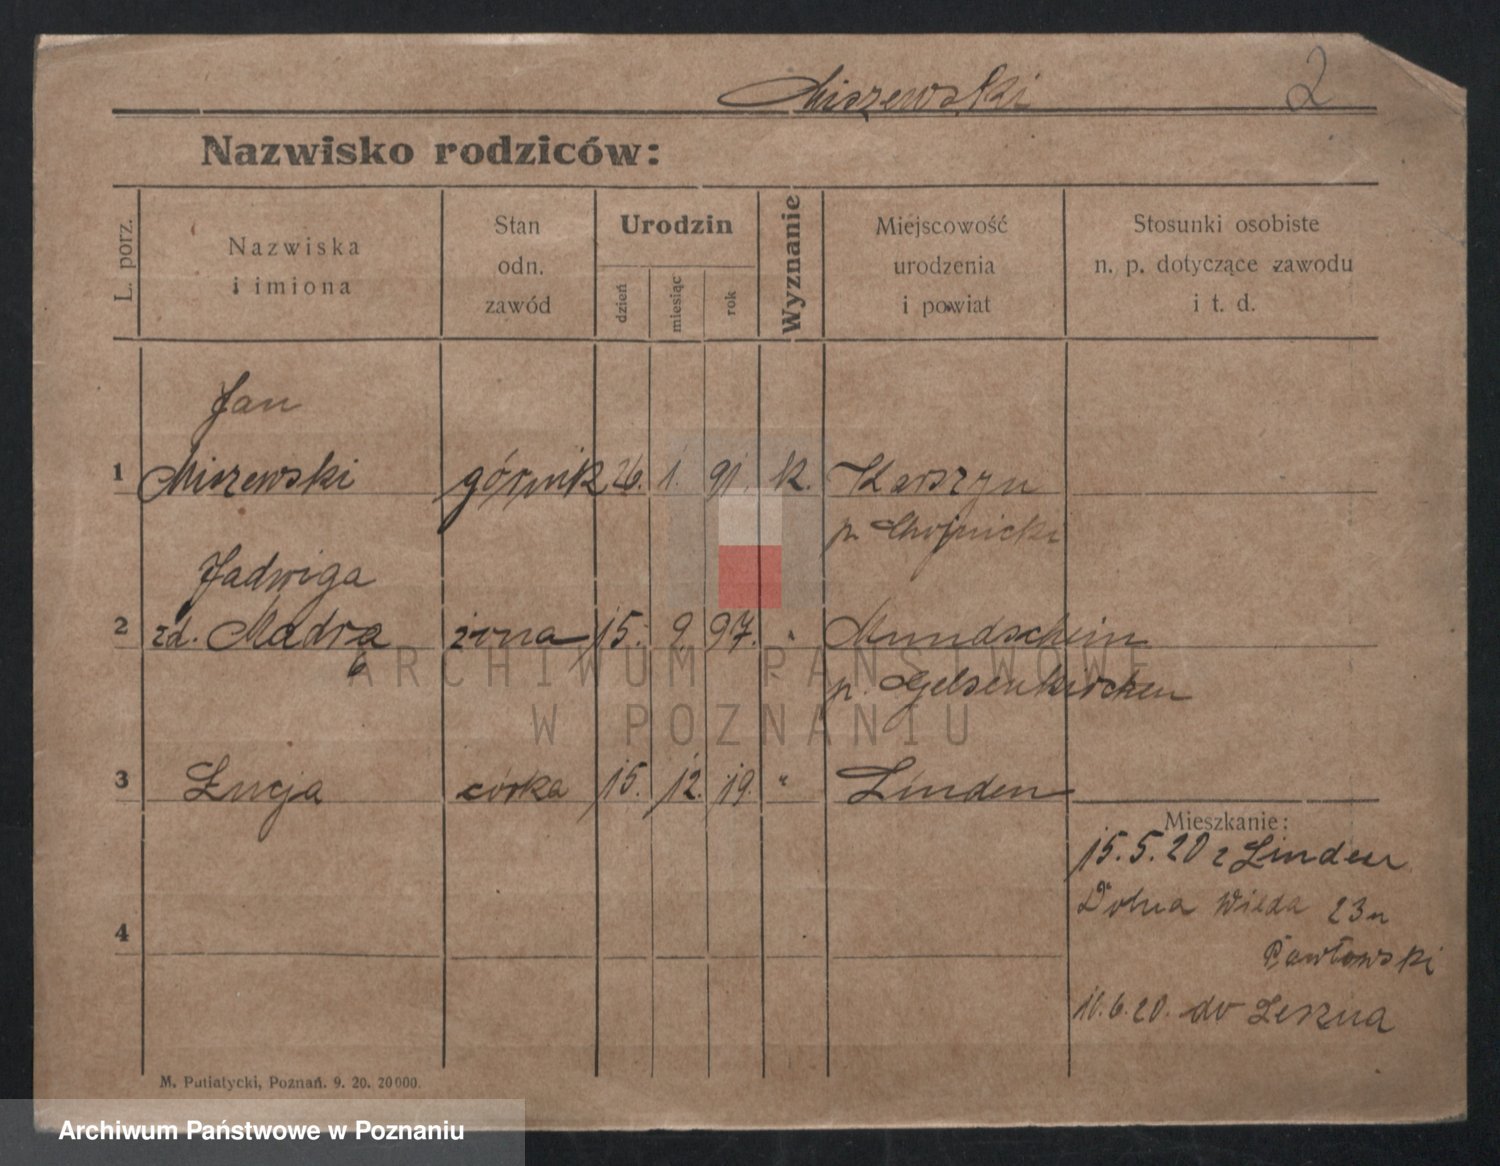 Miszewski 2
Nazwisko rodziców:
L. porz.
Nazwiska
i imiona
Stan
odn.
zawód
Urodzin
dzień
miesiąc
rok
Wyznanie
Miejscowość
urodzenia
i powiat
Stosunki osobiste
n. p. dotyczące zawodu
i t. d.
Jan
1 Miszewski górnik 26. 1. 91. k. Karszyn
p. Chojnicki
Jadwiga
2 zd. Mądra żona 15. 9. 97. "
p. Gelsenkirchen
3 Łucja córka 15. 12. 19. " Linden
Mieszkanie:
15.5.20 z Linden
Dolna Wilda 23 u
Pawłowski
4
6.20. do Leszna
M. Putiatycki, Poznań. 9. 20. 20000.
ARCHIWUM PAŃSTWOWE
W POZNANIU
Archiwum Państwowe w Poznaniu